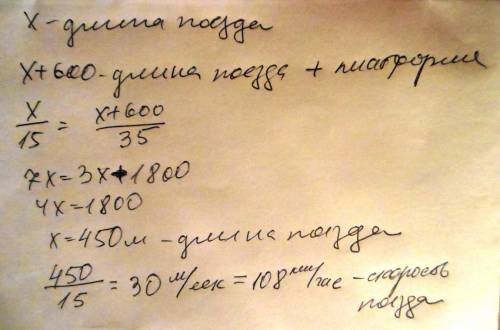 x - длина поезда
x+600 - длина поезда + платформа
x/15 = x+600/35
7x=3x+1800
4x=1800
x=450м - длина поезда
450/15 = 30 м/сек = 108 км/час - скорость
поезда